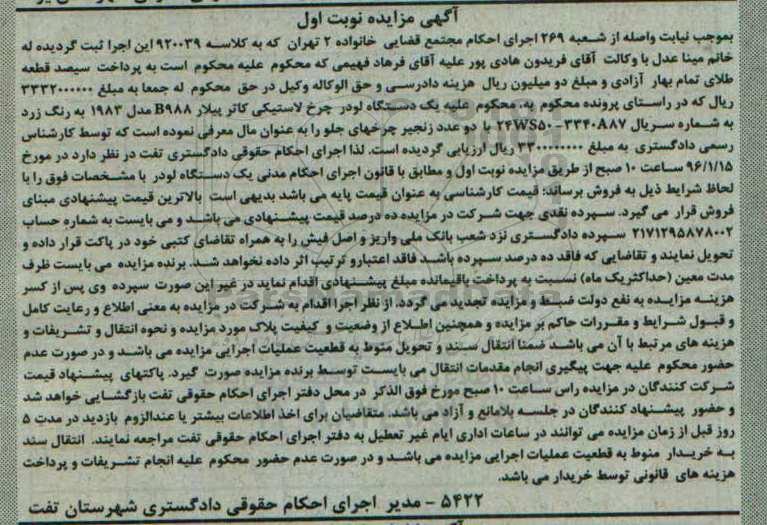 آگهی مزایده نوبت اول
بموجب نیابت واصله از شعبه ۲۶۹ اجرای احکام مجتمع قضایی خانواده ۲ تهران که به کلاسه ۹۲۰۰۳۹ این اجرا ثبت گردیده له
خانم مینا عدل با وکالت آقای فریدون هادی پور علیه آقای فرهاد فهیمی که محکوم علیه محکوم است به پرداخت سیصد قطعه
طلای تمام بهار آزادی و مبلغ دو میلیون ریال هزینه دادرسی و حق الوکاله وکیل در حق محکوم له جمعا به مبلغ ۳۳۳۲۰۰۰۰۰۰
ریال که در راستای پرونده محکوم به، محکوم علیه یک دستگاه لودر چرخ لاستیکی کاتر پیلار B۹۸۸ مدل ۱۹۸۳ به رنگ زرد
به شماره سریال ۲۴WS۵۰-۳۳۴۰A۸۷ با دو عدد زنجیر چرخهای جلو را به عنوان مال معرفی نموده است که توسط کارشناس
رسمی دادگستری به مبلغ ۳۳۰۰۰۰۰۰۰۰ ریال ارزیابی گردیده است. لذا اجرای احکام حقوقی دادگستری تفت در نظر دارد در مورخ
۹۶/۱/۱۵ ساعت ۱۰ صبح از طریق مزایده نوبت اول و مطابق با قانون اجرای احکام مدنی یک دستگاه لودر با مشخصات فوق را با
لحاظ شرایط ذیل به فروش برساند: قیمت کارشناسی به عنوان قیمت پایه می باشد بدیهی است بالاترین قیمت پیشنهادی مبنای
فروش قرار می گیرد. سپرده نقدی جهت شرکت در مزایده ده درصد قیمت پیشنهادی می باشد و می بایست به شماره حساب
۲۱۷۱۲۹۵۸۷۸۰۰۲ سپرده دادگستری نزد شعب بانک ملی واریز و اصل فیش را به همراه تقاضای کتبی خود در پاکت قرار داده و
تحویل نمایند و تقاضایی که فاقد ده درصد سپرده باشد فاقد اعتبار و ترتیب اثر داده نخواهد شد. برنده مزایده می بایست ظرف
مدت معین (حداکثر یک ماه) نسبت به پرداخت باقیمانده مبلغ پیشنهادی اقدام نماید در غیر این صورت سپرده وی پس از کسر
هزینه مزایده به نفع دولت ضبط و مزایده تجدید می گردد. از نظر اجرا اقدام به شرکت در مزایده به معنی اطلاع و رعایت کامل
و قبول شرایط و مقررات حاکم بر مزایده و همچنین اطلاع از وضعیت و کیفیت پلاک مورد مزایده و نحوه انتقال و تشریفات و
هزینه های مرتبط با آن می باشد ضمنا انتقال سند و تحویل منوط به قطعیت عملیات اجرایی مزایده می باشد و در صورت عدم
حضور محکوم علیه جهت پیگیری انجام مقدمات انتقال می بایست توسط برنده مزایده صورت گیرد. پاکتهای پیشنهاد قیمت
شرکت کنندگان در مزایده راس ساعت ۱۰ صبح مورخ فوق الذکر در محل دفتر اجرای احکام حقوقی تفت بازگشایی خواهد شد
و حضور پیشنهاد کنندگان در جلسه بلامانع و آزاد می باشد. متقاضیان برای اخذ اطلاعات بیشتر یا عندالزوم بازدید در مدت ۵
روز قبل از زمان مزایده می توانند در ساعات اداری ایام غیر تعطیل به دفتر اجرای احکام حقوقی تفت مراجعه نمایند. انتقال سند
به خریدار منوط به قطعیت عملیات اجرایی مزایده می باشد و در صورت عدم حضور محکوم علیه انجام تشریفات و پرداخت
هزینه های قانونی توسط خریدار می باشد.
۵۴۲۲ - مدیر اجرای احکام حقوقی دادگستری شهرستان تفت